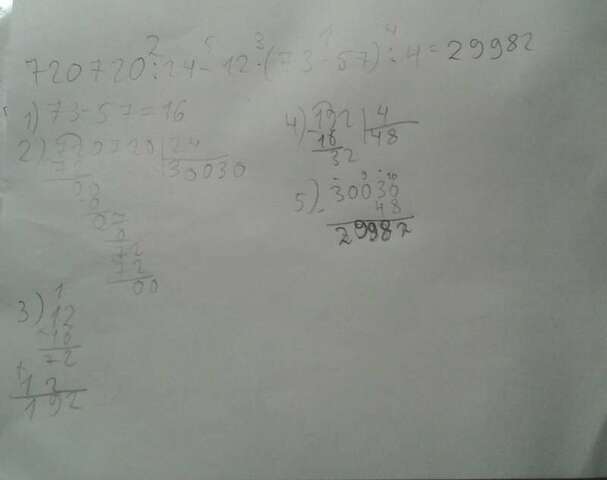 720720:24-12·(73-57):4=29982
2 5 3 1 4
1) 73-57=16
2) 720720 | 24
72 30030
00
0
07
0
72
72
00
3) 12
16
72
+12
192
4) 192 | 4
16 48
32
5) 30030
48
29982